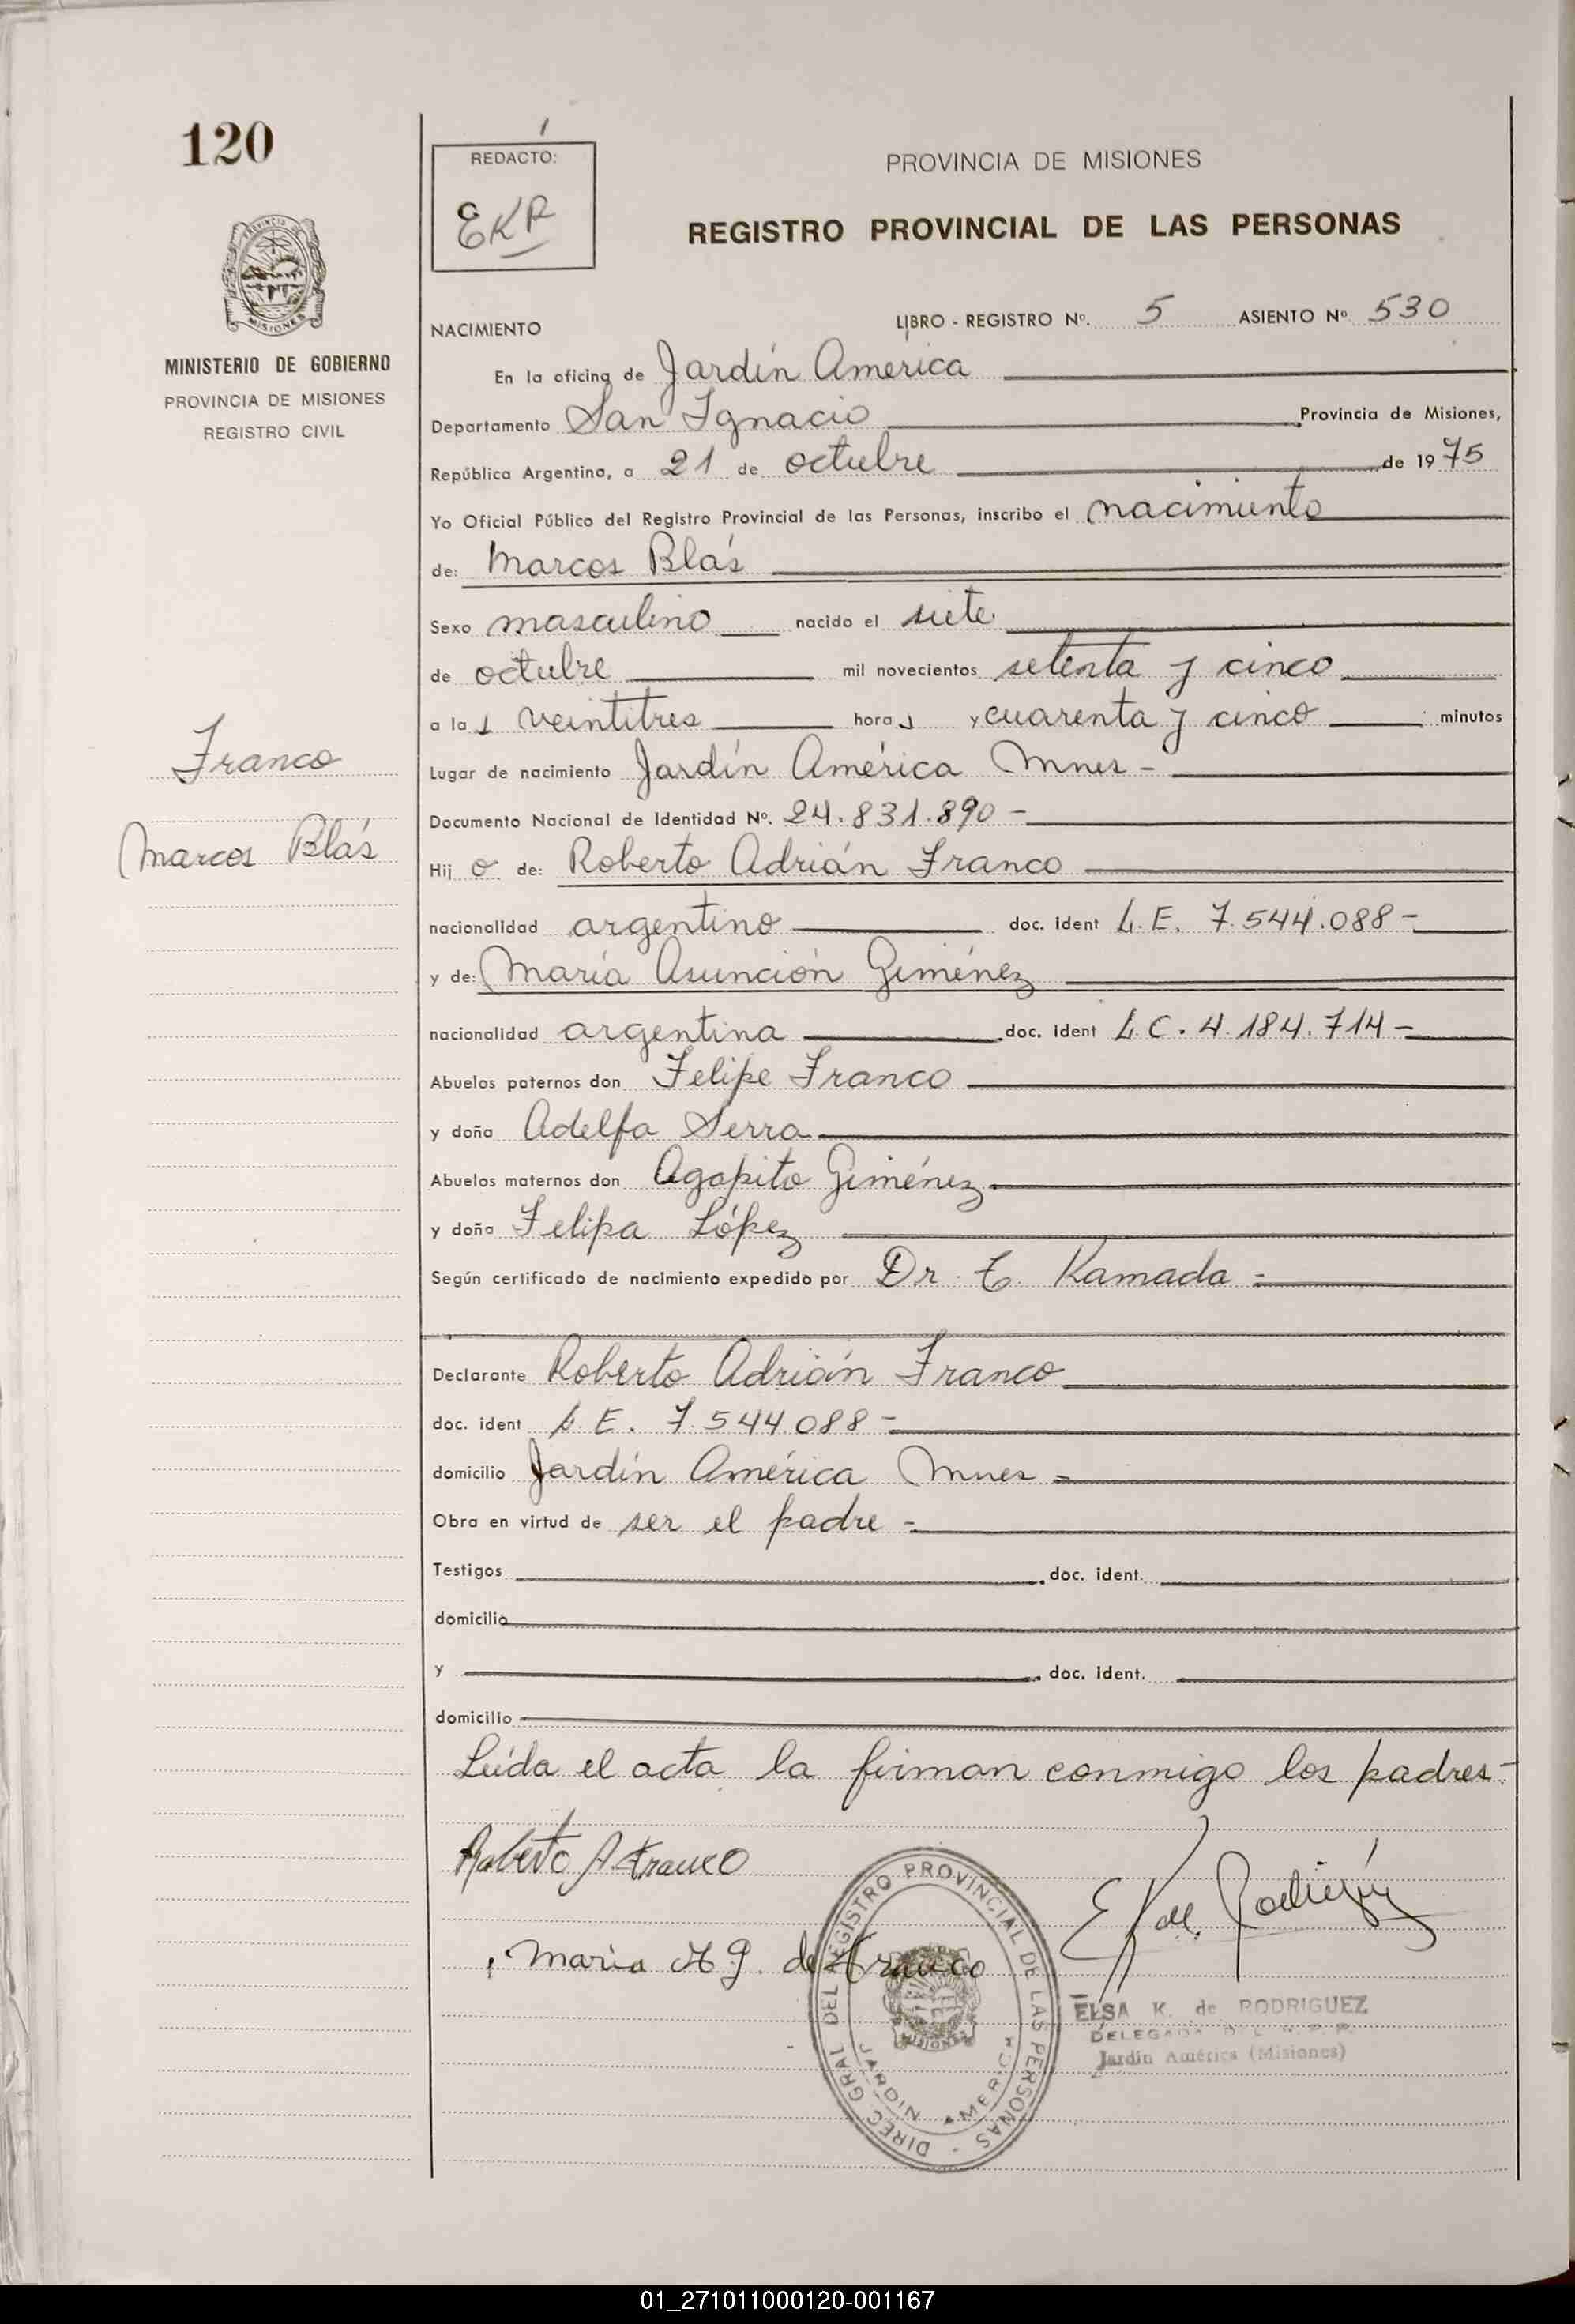 120
REDACTÓ:
EKR
PROVINCIA DE MISIONES
REGISTRO PROVINCIAL DE LAS PERSONAS
MISIONES
MINISTERIO DE GOBIERNO
PROVINCIA DE MISIONES
REGISTRO CIVIL
NACIMIENTO
LIBRO - REGISTRO Nº. 5 ASIENTO Nº 530
En la oficina de Jardín America
Departamento San Ignacio Provincia de Misiones,
República Argentina, a 21 de octubre de 1975
Yo Oficial Público del Registro Provincial de las Personas, inscribo el nacimiento
de: Marcos Blás
Sexo masculino nacido el siete
de octubre mil novecientos setenta y cinco
a las veintitres horas y cuarenta y cinco minutos
Franco
Lugar de nacimiento Jardín América Mnes -
Documento Nacional de Identidad Nº. 24.831.890 -
Marcos Blás
Hijo de: Roberto Adrián Franco
nacionalidad argentino doc. ident L.E. 7.544.088 -
y de: María Asunción Giménez
nacionalidad argentina doc. ident L.C. 4.184.714 -
Abuelos paternos don Felipe Franco
y doña Adelfa Serra
Abuelos maternos don Agapito Giménez
y doña Felipa López
Según certificado de nacimiento expedido por Dr. C. Kamada =
Declarante Roberto Adrián Franco
doc. ident L.E. 7.544.088 -
domicilio Jardín América Mnes =
Obra en virtud de ser el padre -
Testigos doc. ident.
domicilio
y doc. ident.
domicilio
Leída el acta la firman conmigo los padres -
Roberto A Franco
E K de Rodriguez
Maria A G. de Franco
DIREC. GRAL DEL REGISTRO PROVINCIAL DE LAS PERSONAS
MISIONES
JARDIN AMERICA
ELSA K. de RODRIGUEZ
DELEGADA
Jardín América (Misiones)
01_271011000120-001167